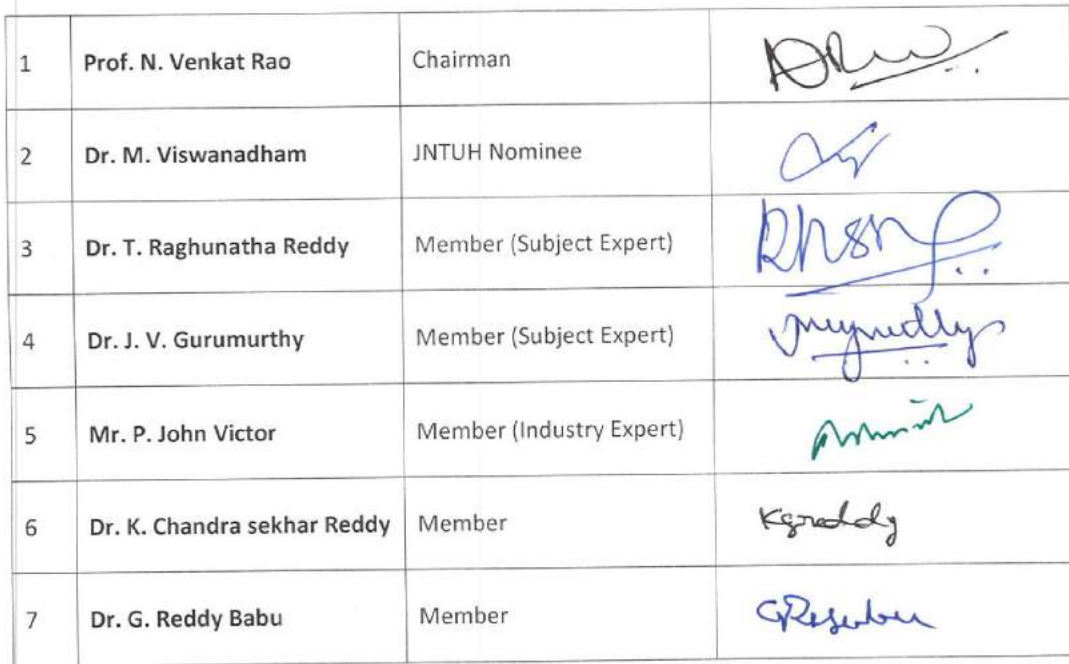 1 Prof. N. Venkat Rao Chairman
2 Dr. M. Viswanadham JNTUH Nominee
3 Dr. T. Raghunatha Reddy Member (Subject Expert)
4 Dr. J. V. Gurumurthy Member (Subject Expert)
5 Mr. P. John Victor Member (Industry Expert)
6 Dr. K. Chandra sekhar Reddy Member
7 Dr. G. Reddy Babu Member